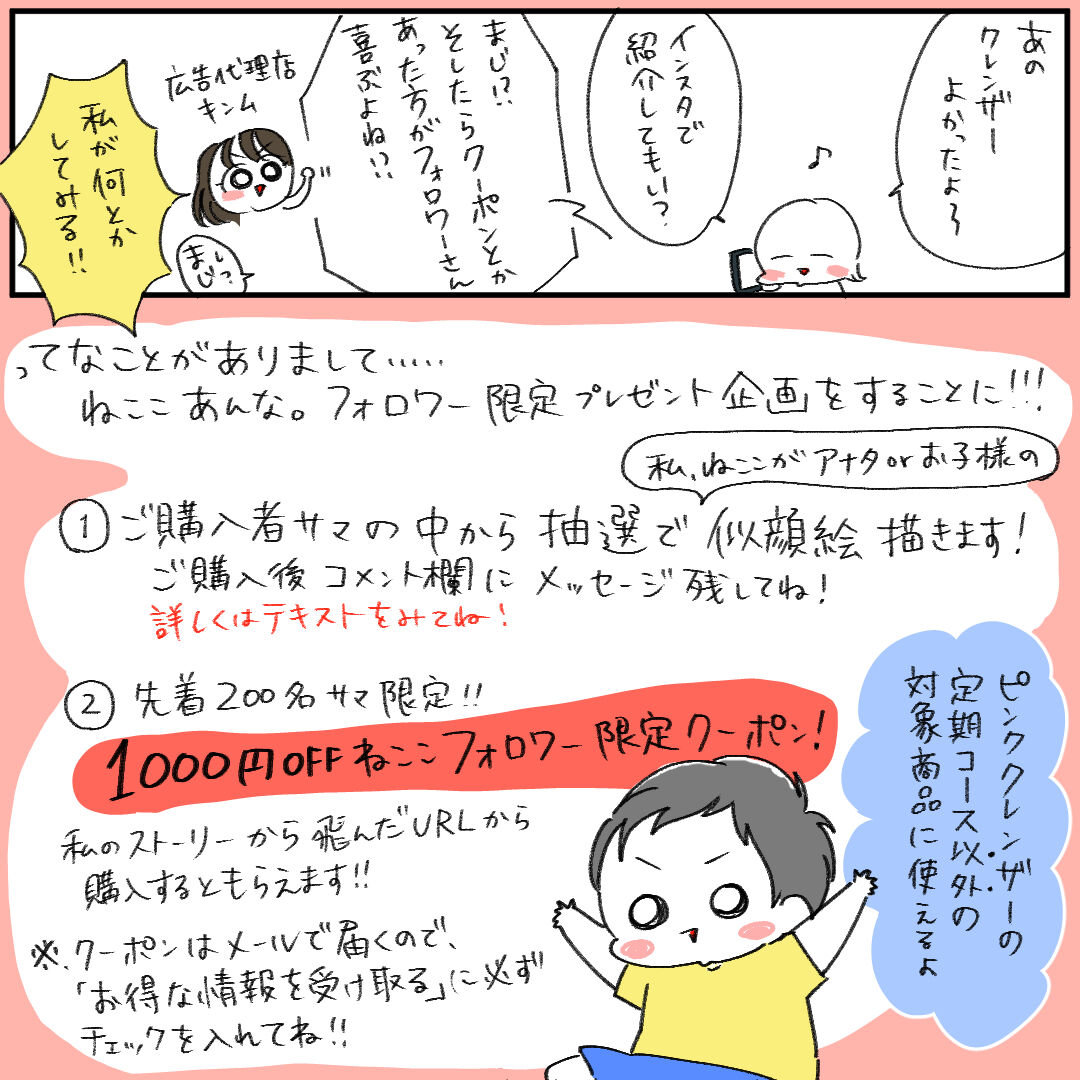 あの
クレンザー
よかったよ〜
インスタで
紹介してもい?
まじ!?
そしたらクーポンとか
あった方がフォロワーさん
喜ぶよね!?
広告代理店
キンム
私が何とか
してみる!!
まじっ?
ってなことがありまして……
ねここあんな。フォロワー限定プレゼント企画をすることに!!!
私、ねここがアナタorお子様の
① ご購入者サマの中から抽選で似顔絵描きます!
ご購入後コメント欄にメッセージ残してね!
詳しくはテキストをみてね!
② 先着200名サマ限定!!
1000円OFFねここフォロワー限定クーポン!
私のストーリーから飛んだURLから
購入するともらえます!!
※.クーポンはメールで届くので、
「お得な情報を受け取る」に必ず
チェックを入れてね!!
ピンククレンザーの
定期コース以外の
対象商品に使えるよ